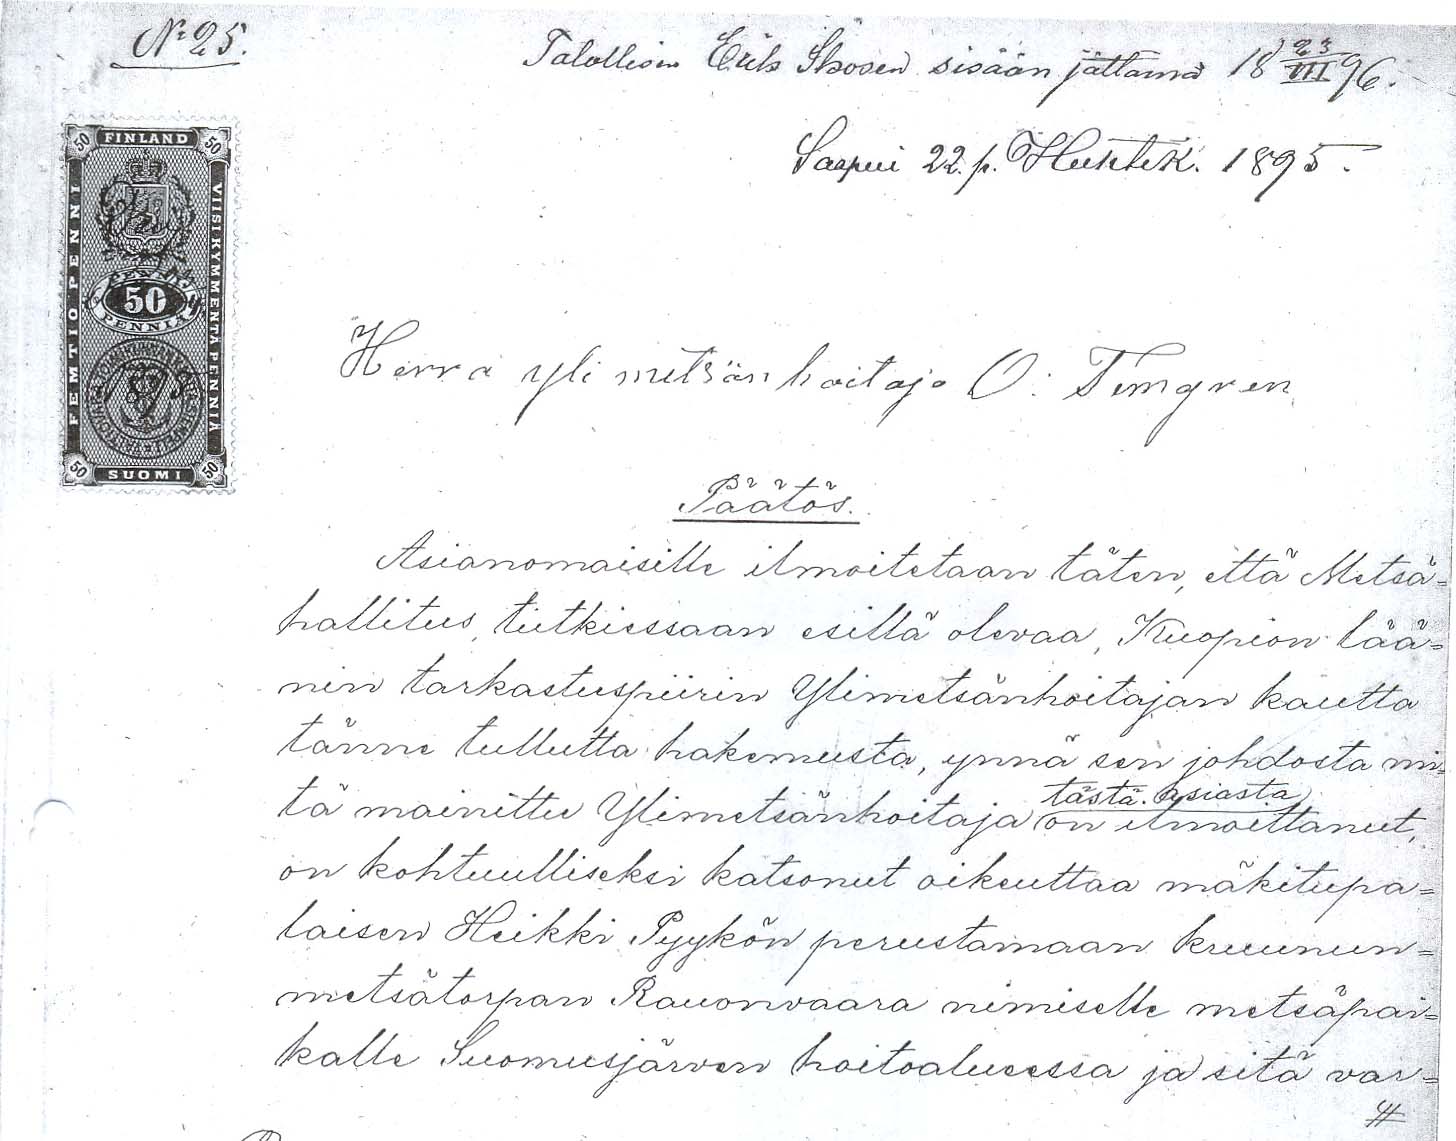 N:o 25.
Talollisen Erik Ikosen sisään jättämä 18 23/III 96.
Saapui 22 p. Huhtik. 1895.
FINLAND
50 50
FEMTIO PENNI
VIISIKYMMENTÄ PENNIÄ
PENNI
50
PENNIÄ
50 50
SUOMI
Herra yli metsänhoitaja O. Timgren
Päätös.
Asianomaisille ilmoitetaan täten, että Metsä=
hallitus, tutkiessaan esillä olevaa, Kuopion lää=
nin tarkastuspiirin Ylimetsänhoitajan kautta
tänne tullutta hakemusta, ynnä sen johdosta mi=
tästä asiasta
tä mainittu Ylimetsänhoitaja on ilmoittanut,
on kohtuulliseksi katsonut oikeuttaa mäkitupa=
laisen Heikki Pyykön perustamaan kruunun=
metsätorpan Rauonvaara nimiselle metsäpai=
kalle Suomusjärven hoitoalueessa ja sitä var=